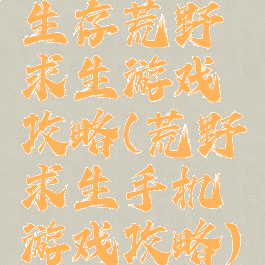 生存荒野
求生游戏
攻略(荒野
求生手机
游戏攻略)